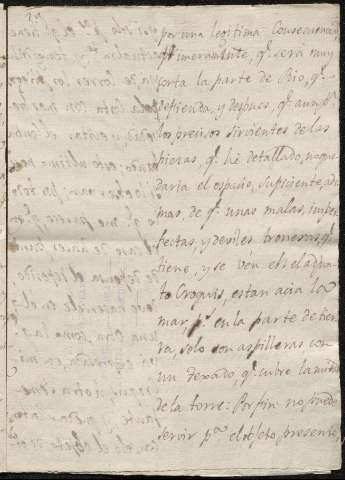 por una legitima Consecuencia,
primeramente, q.e será muy
corta la parte de Rio, q.e
defienda, y despues, q.e aunq.e
los precisos sirvientes de las
piezas, q.e hé detallado, no que
daria el espacio, suficiente, ade
mas, de q.e unas malas, imper
fectas, y deviles troneras, q.e
tiene, y se ven el el adjun
to Croquis, estan acia la
mar p.s en la parte de tier
ra, solo son aspilleras con
un texado, q.e cubre la mitad
de la torre: Por fin no puede
servir p.a el objeto presente,